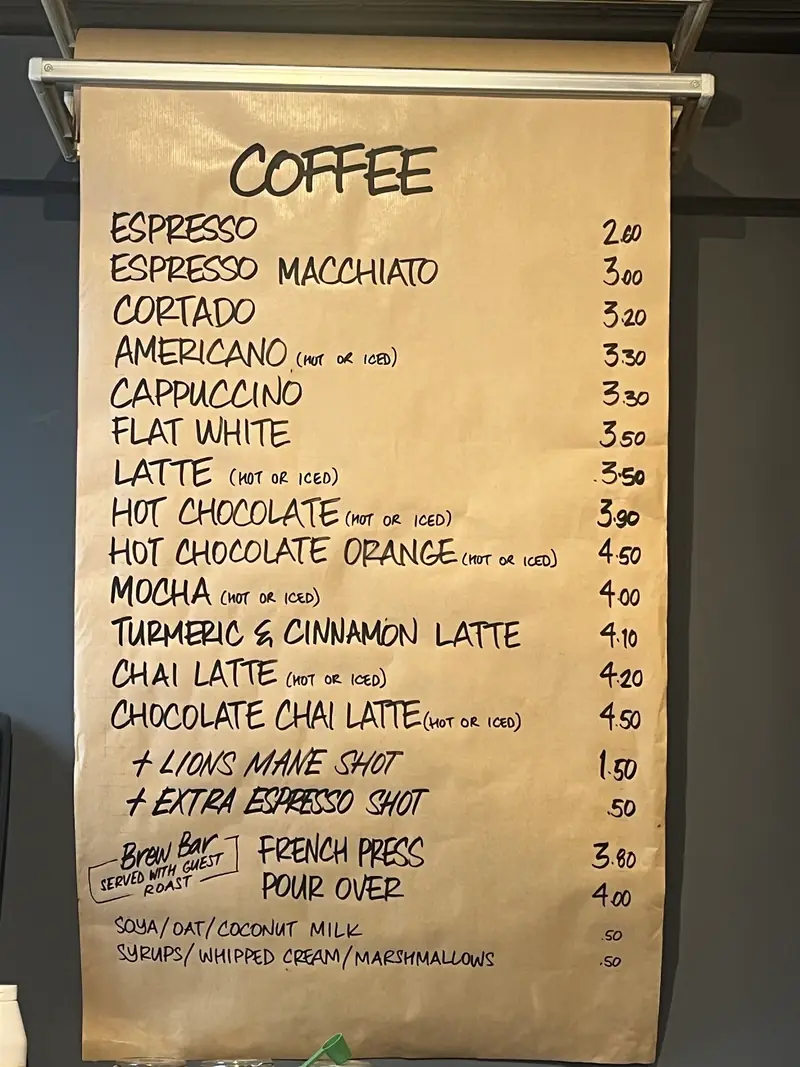 COFFEE
ESPRESSO 2.60
ESPRESSO MACCHIATO 3.00
CORTADO 3.20
AMERICANO (HOT OR ICED) 3.30
CAPPUCCINO 3.30
FLAT WHITE 3.50
LATTE (HOT OR ICED) 3.50
HOT CHOCOLATE (HOT OR ICED) 3.90
HOT CHOCOLATE ORANGE (HOT OR ICED) 4.50
MOCHA (HOT OR ICED) 4.00
TURMERIC & CINNAMON LATTE 4.10
CHAI LATTE (HOT OR ICED) 4.20
CHOCOLATE CHAI LATTE (HOT OR ICED) 4.50
+ LIONS MANE SHOT 1.50
+ EXTRA ESPRESSO SHOT .50
Brew Bar
SERVED WITH GUEST
ROAST
FRENCH PRESS 3.80
POUR OVER 4.00
SOYA/OAT/COCONUT MILK .50
SYRUPS/WHIPPED CREAM/MARSHMALLOWS .50